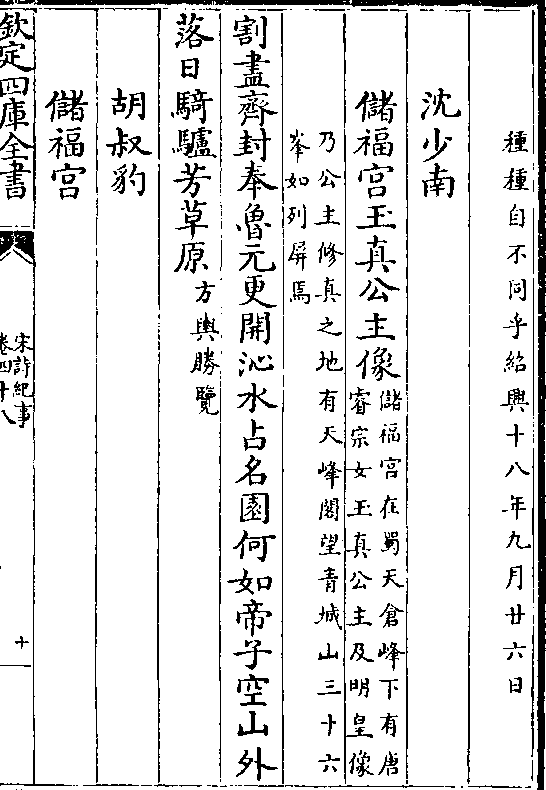 種種自不同乎紹興十八年九月廿六日
沈少南
儲福宫玉真公主像
儲福宫在蜀天倉峰下有唐
睿宗女玉真公主及明皇像
乃公主修真之地有天峰閣望青城山三十六
峯如列屏焉
割盡齊封奉魯元更開沁水占名園何如帝子空山外
落日騎驢芳草原
方輿勝覽
胡叔豹
儲福宫
欽定四庫全書
宋詩紀事
卷四十八
十